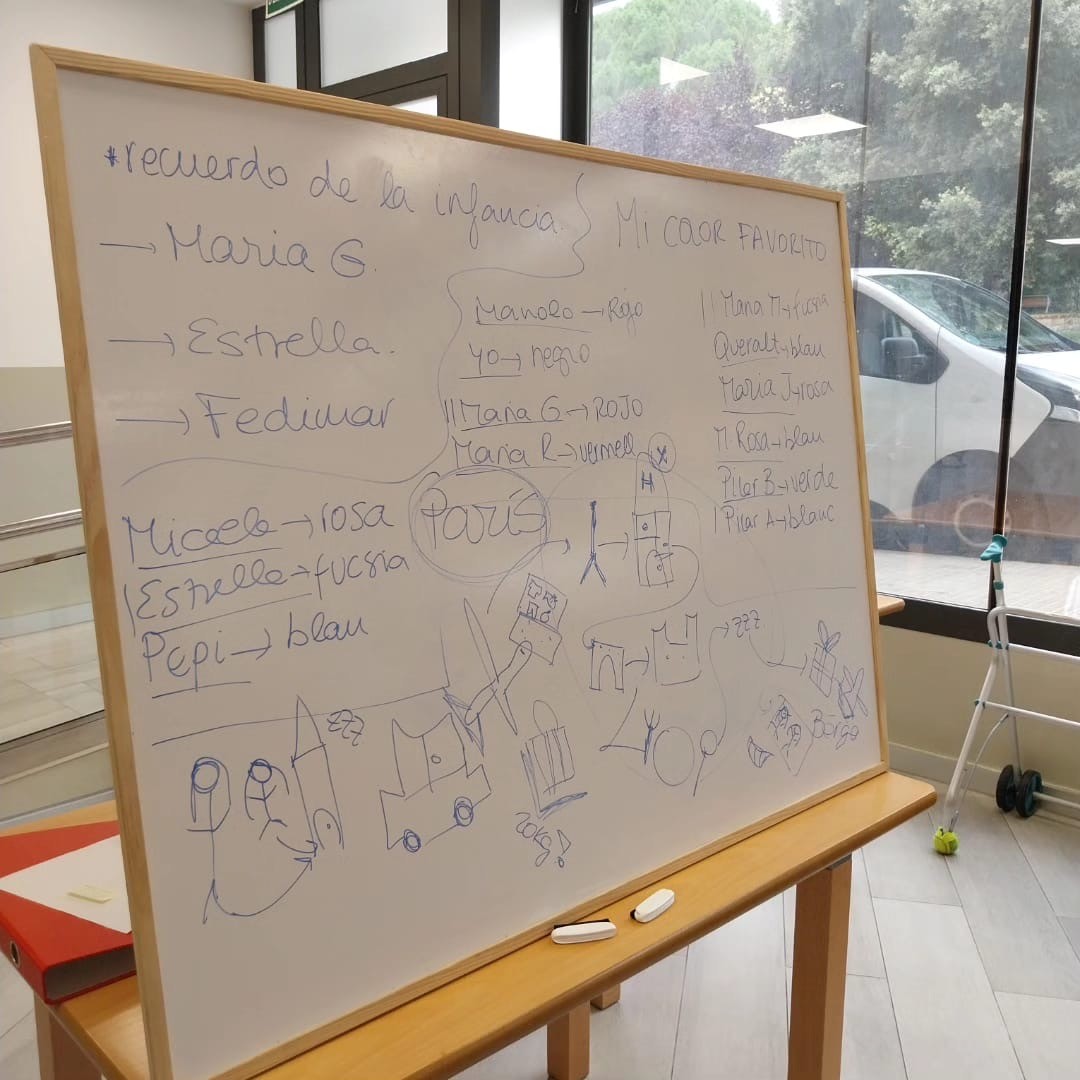 *recuerdo de la infancia.
→ Maria G.
→ Estrella.
→ Fedimar
Mi COLOR FAVORITO
Manolo → Rojo
Yo → negro
Maria G → ROJO
Maria R → vermell
Maria M → fucsia
Queralt → blau
Maria J → rosa
M. Rosa → blau
Pilar B → verde
Pilar A → blanc
Micaela → rosa
Estrella → fucsia
Pepi → blau
París
H
zzz
zzz
20kg!